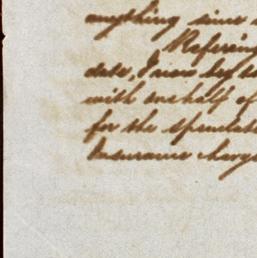 anything since
Refering
date, I now beg to
with one half of
for the
Insurance charge